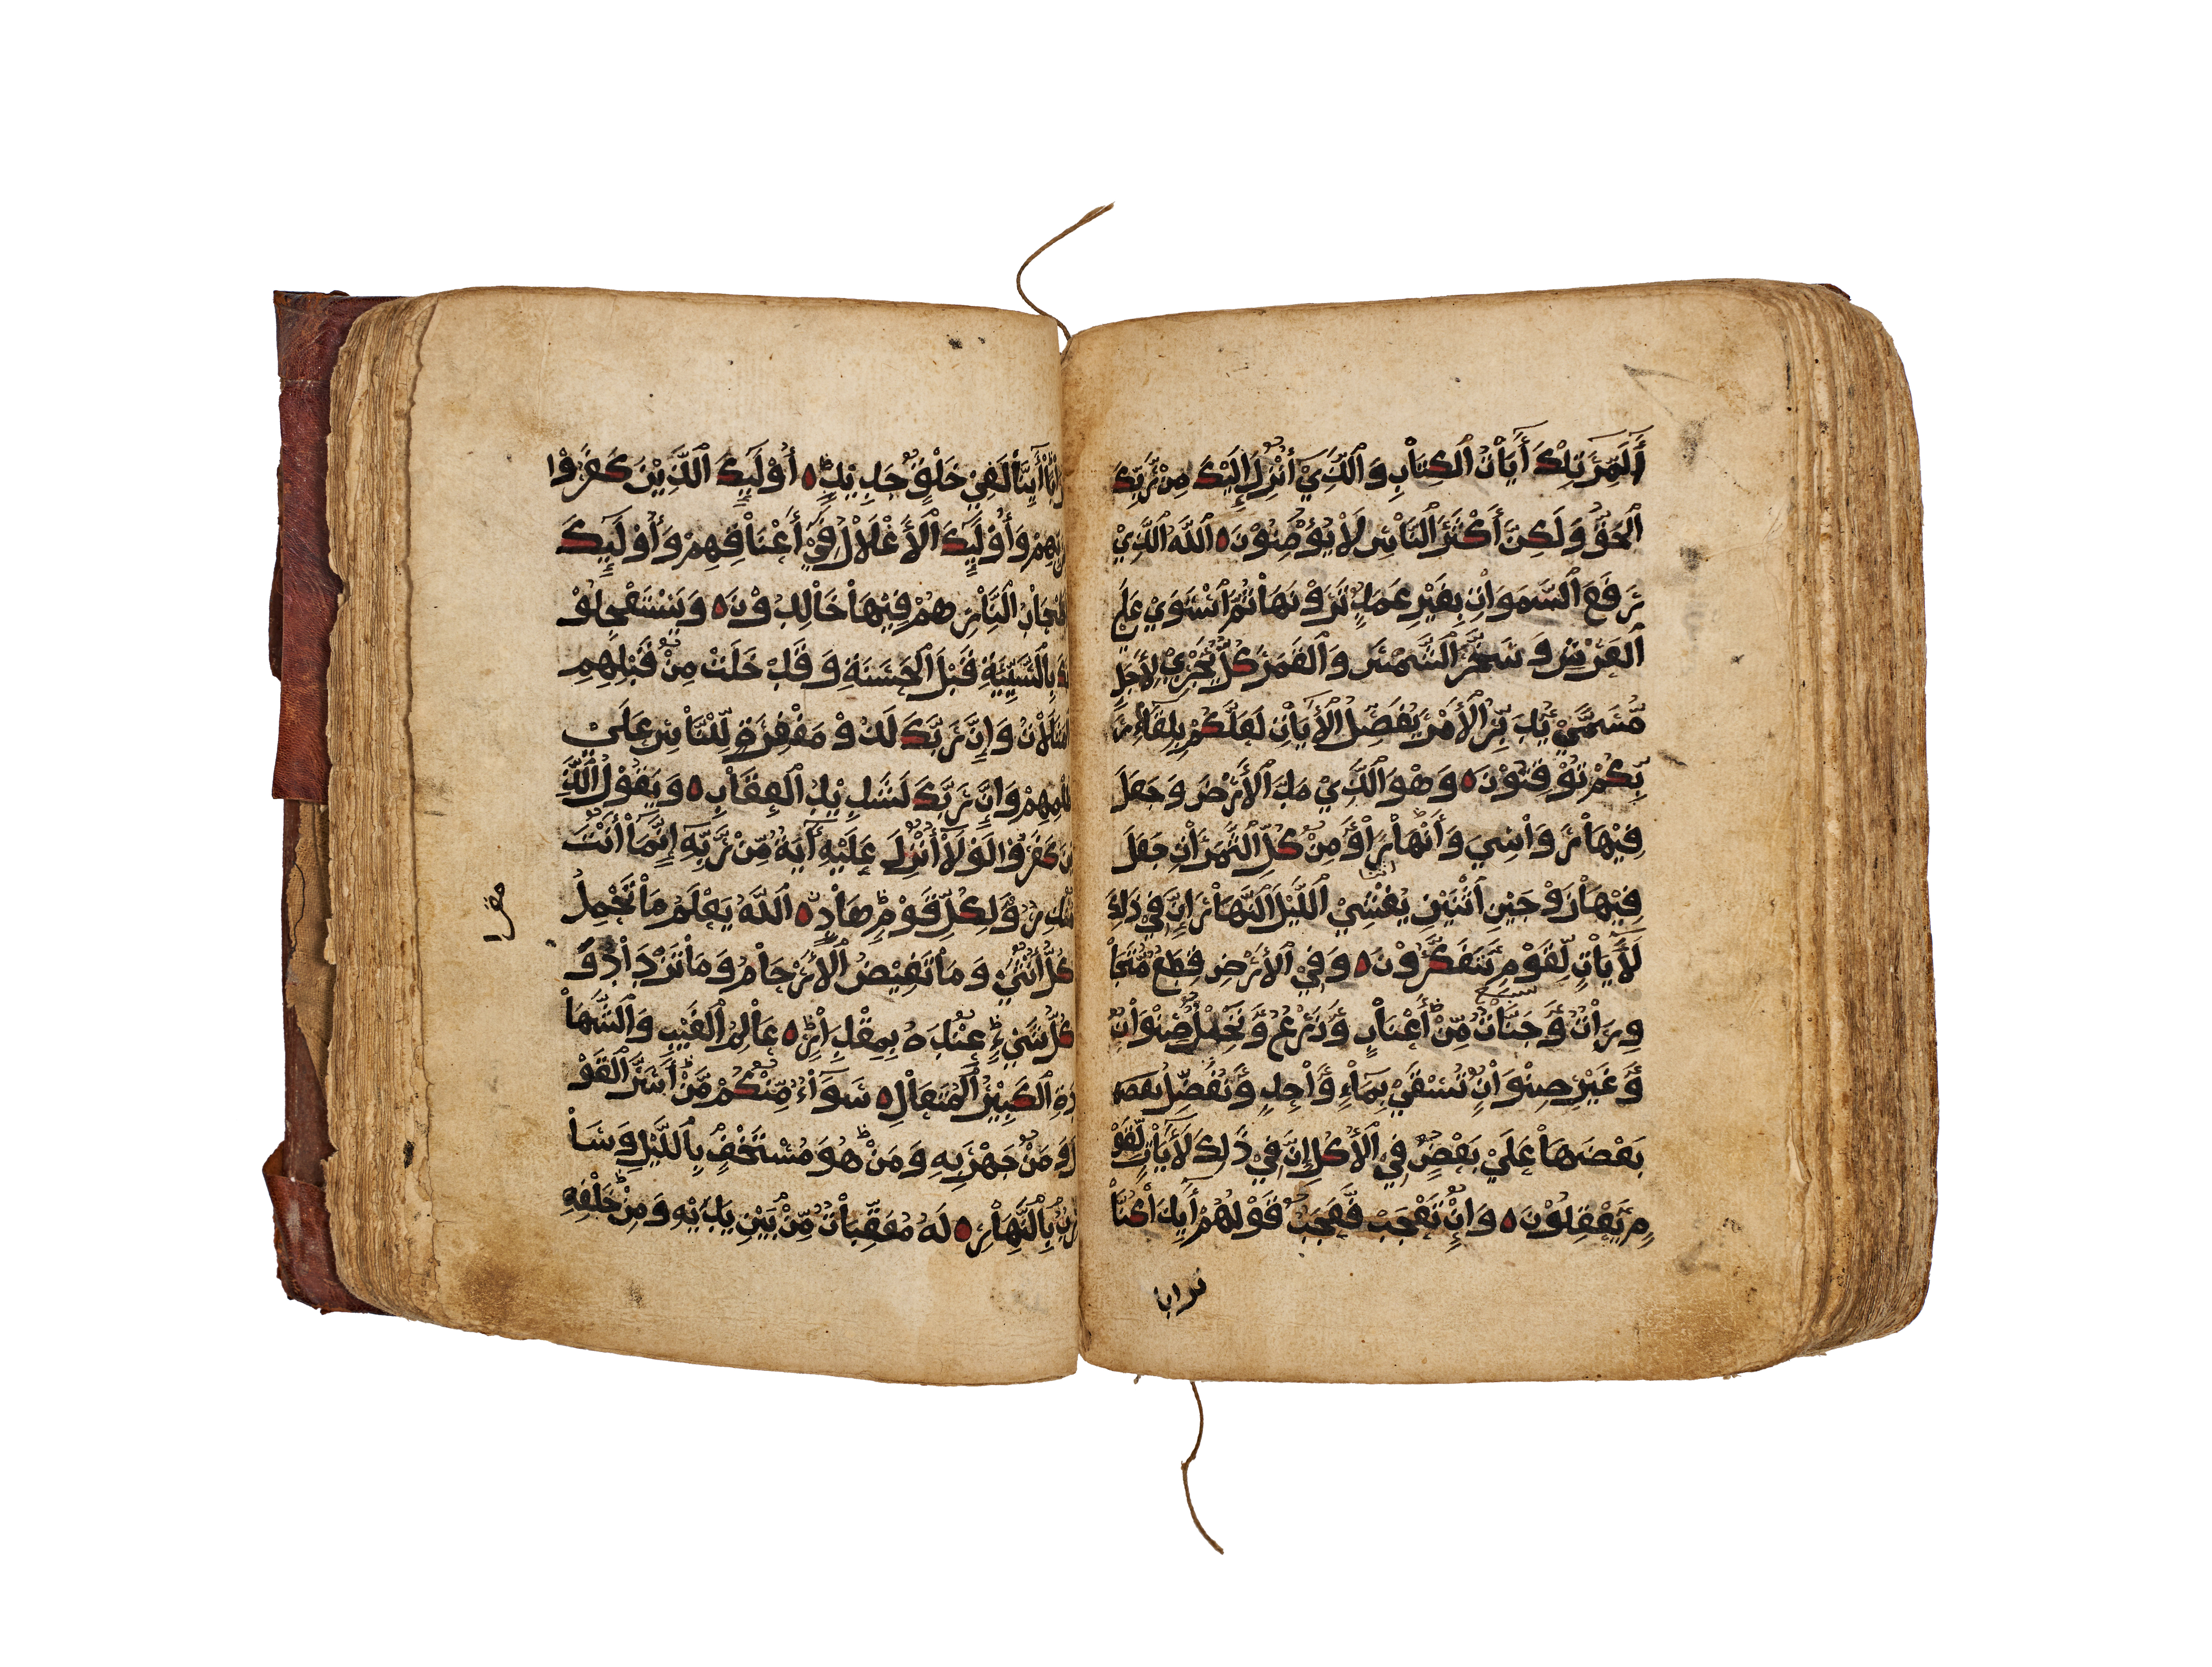 ألمر تلك أيات الكتاب والذي أنزل إليك من ربك
الحق ولكن أكثر الناس لا يؤمنون ه الله الذي
رفع السموات بغير عمد ترونها ثم استوي علي
العرش وسخر الشمس والقمر كل يجري لأجل
مسمي يدبر الأمر يفصل الأيات لعلكم بلقاء ر
بكم توقنون ه وهو الذي مد الأرض وجعل
فيها رواسي وأنهارا ومن كل الثمرات جعل
فيها زوجين اثنين يغشي الليل النهار إن في ذلك
لأيات لقوم يتفكرون ه وفي الأرض قطع متجا
ورات وجنات من أعناب وزرع ونخيل صنوان
وغير صنوان تسقي بماء واحد ونفضل
بعضها علي بعض في الأكل إن في ذلك لأيات لقو
م يعقلون ه وإن تعجب فعجب قولهم أيذا كنا
ترابا
لفي خلق جديد ه أوليك الذين كفروا
وأوليك الأغلال في أعناقهم وأوليك
النار هم فيها خالدون ه ويستعجلو
بالسيية قبل الحسنة وقد خلت من قبلهم
وإن ربك لذو مغفرة للناس علي
وإن ربك لشديد العقاب ه ويقول الذ
كفروا لولا أنزل عليه أية من ربه إنما أنت
ولكل قوم هاد ه الله يعلم ما تحمل
كل أنثي وما تغيض الأرحام وما تزداد و
كل شيء عنده بمقدار ه عالم الغيب والشها
دة الكبير المتعال ه سواء منكم من أسر القو
ل ومن جهر به ومن هو مستخف بالليل وسا
رب بالنهار ه له معقبات من بين يديه ومن خلفه